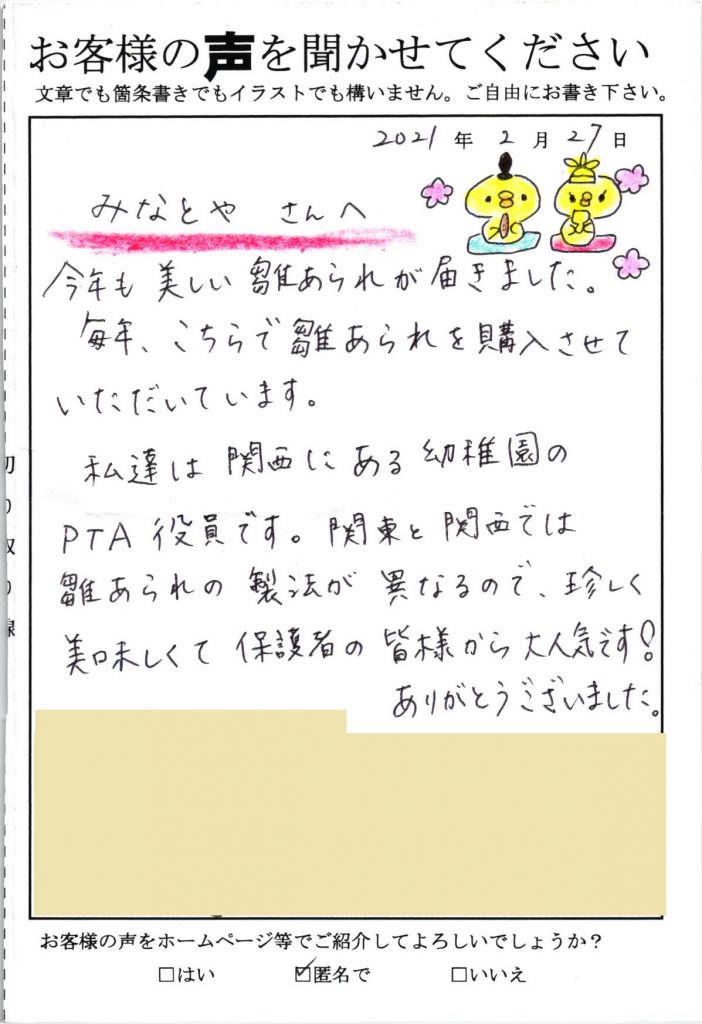 お客様の声を聞かせてください
文章でも箇条書きでもイラストでも構いません。ご自由にお書き下さい。
2021 年 2 月 27 日
みなとや さんへ
今年も美しい雛あられが届きました。
毎年、こちらで雛あられを購入させて
いただいています。
私達は関西にある幼稚園の
PTA役員です。関東と関西では
雛あられの製法が異なるので、珍しく
美味しくて保護者の皆様から大人気です!
ありがとうございました。
切り取り線
お客様の声をホームページ等でご紹介してよろしいでしょうか?
□はい ☑匿名で □いいえ